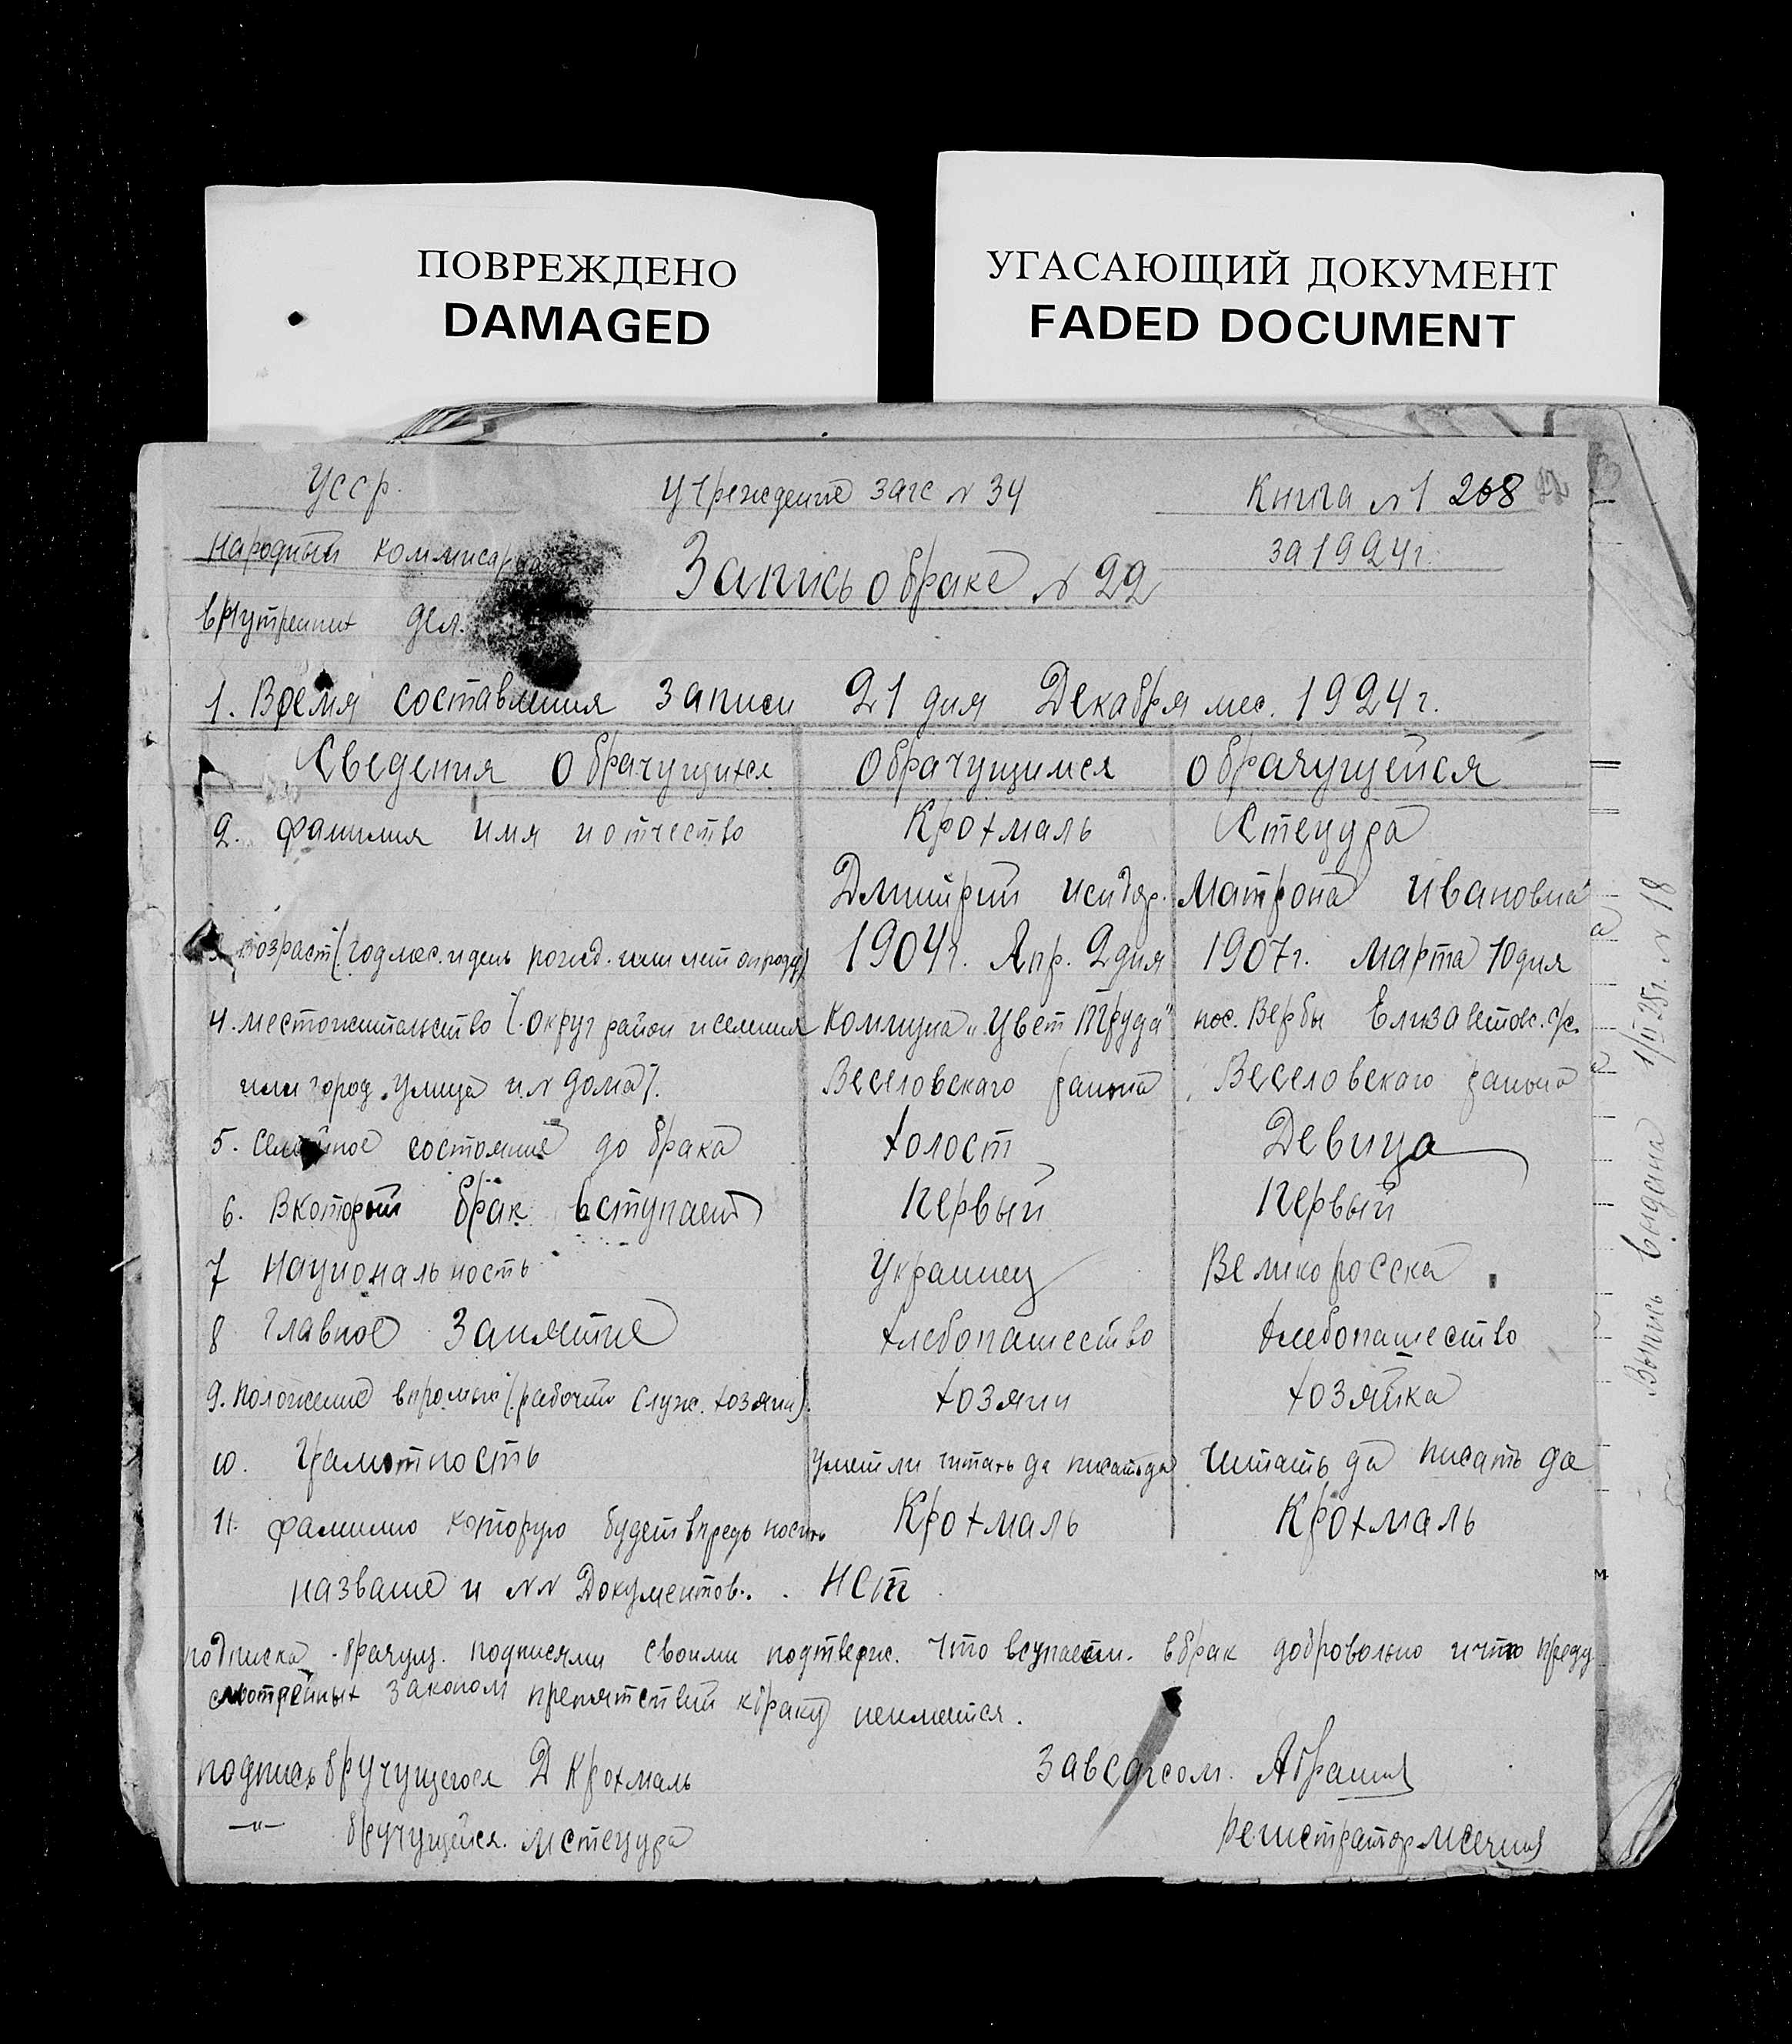 ПОВРЕЖДЕНО
DAMAGED
УГАСАЮЩИЙ ДОКУМЕНТ
FADED DOCUMENT
УССР.
Учреждение ЗАГС № 34
Книга № 1 268
Народный Коммисариат
Запись о браке № 22
за 1924 г.
внутренних дел.
1. Время составления записи 21 дня Декабря мес. 1924 г.
Сведения о брачущихся обрачущимся обрачущейся
2. фамилия имя и отчество Крохмаль Стецура
Дмитрий Исидор. Матрона Ивановна
3. возраст (год мес. и день рожд. или лет от роду) 1904 г. Апр. 2 дня 1907 г. Марта 10 дня
4. местожительство (округ район и селения Коммуна „Цвет Труда" пос. Вербы Елизаветов. с/с.
или город улица и № дома). Веселовскаго района Веселовскаго района
5. Семейное состояние до брака холост Девица
6. В который брак вступает Первый Первый
7 Национальность Украинец Великоросска
8 Главное Занятие хлебопашество хлебопашество
9. положение в промысл (рабочий служ. хозяин). хозяин хозяйка
10. Грамотность умеет ли читать да писать да читать да писать да
11. фамилию которую будет впредь носить Крохмаль Крохмаль
название и №№ Документов. . Нет
подписка брачущ. подписями своими подтверж. что вступаем. в брак добровольно и что преду
смотренных законом препятствий к браку неимеется.
подпись бручущегося Д Крохмаль
Завзагсом.
—"— бручущейся. М Стецура
регистратор
Выпись выдана 1/II 25 г. № 18